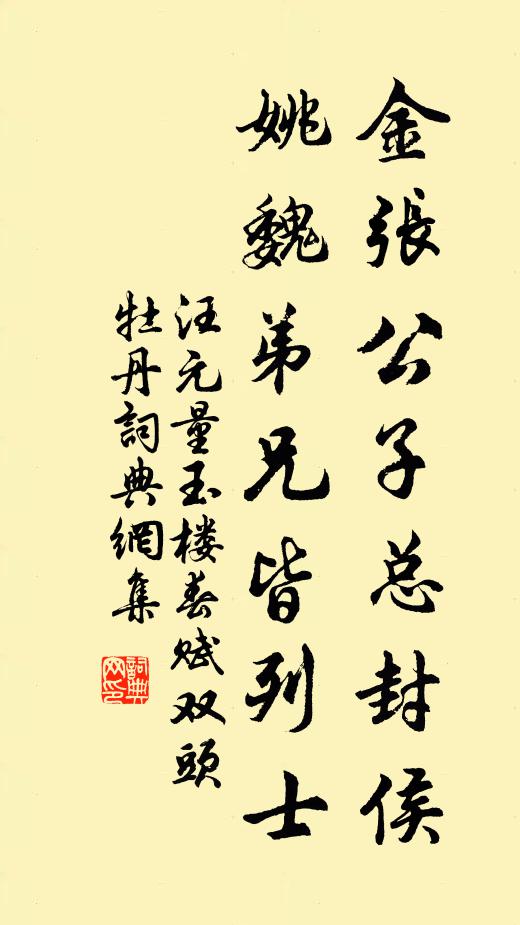 金張公子总封侯
姚魏弟兄皆列士
汪元量玉楼春赋双頭
牡丹詞典網集
詞典网印